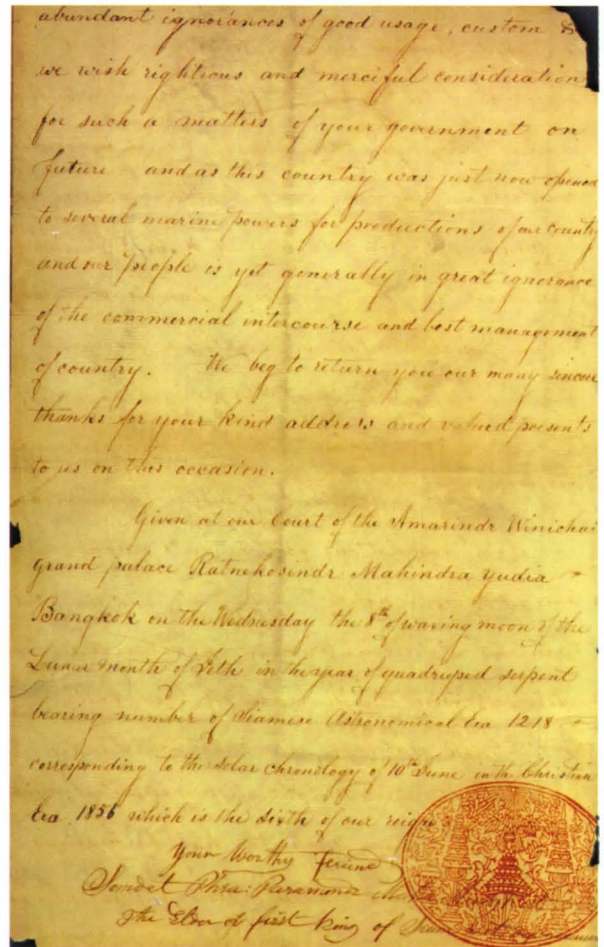 abundant ignorances of good usage, custom &
we wish rightious and merciful consideration
for such a matters of your government on
future and as this country was just now opened
to several marine powers for productions of our country
and our people is yet generally in great ignorance
of the commercial intercourse and best management
of country. We beg to return you our many sincere
thanks for your kind address and valued presents
to us on this occasion.
Given at our Court of the Amarindr Winichai
grand palace Ratnekosindr Mahindra Yudia
Bangkok on the Wednesday the 8th of waxing moon of the
Lunar month of Jeth in the year of quadruped serpent
bearing number of Siamese Astronomical Era 1218
corresponding to the solar chronology of 10th June in the Christian
Era 1856 which is the sixth of our reign
Your Worthy
Somdet Phra
The Elder or first king of